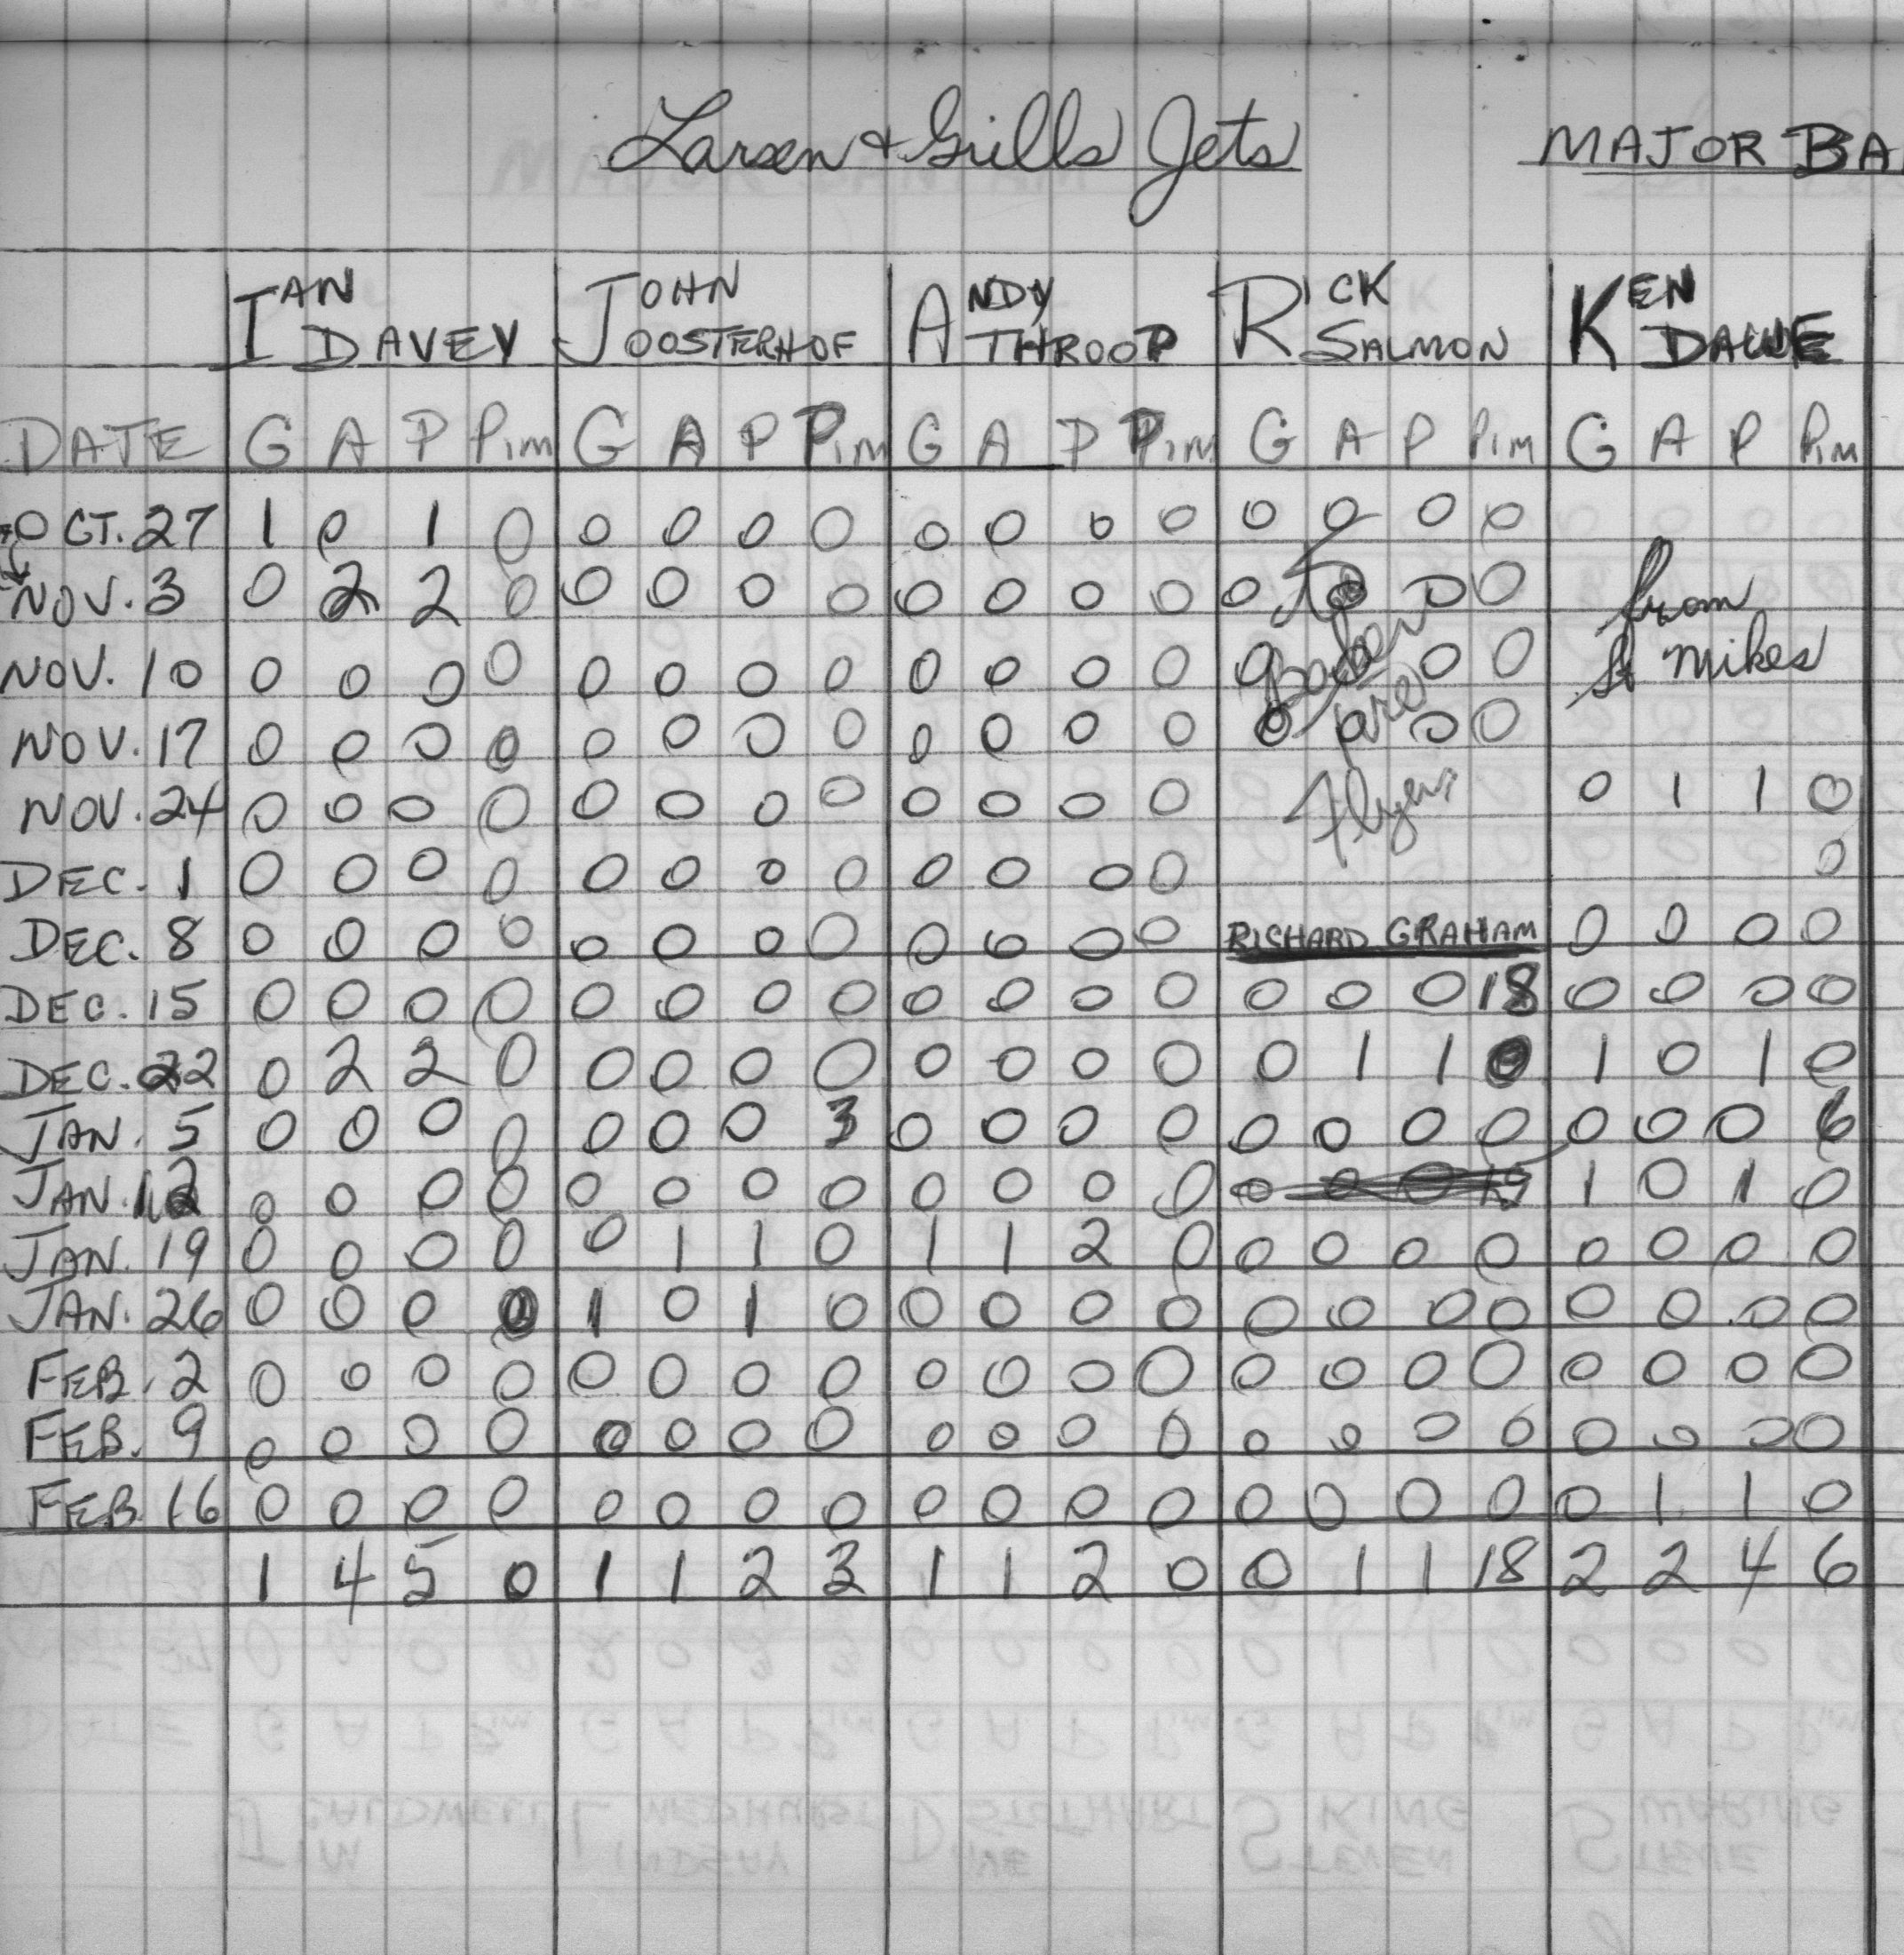 Larsen & Grills Jets MAJOR BA
IAN DAVEY JOHN OOSTERHOF ANDY THROOP RICK SALMON KEN DAWE
DATE G A P Pim G A P Pim G A P Pim G A P Pim G A P Pim
OCT. 27 1 0 1 0 0 0 0 0 0 0 0 0 0 0 0 0
NOV. 3 0 2 2 0 0 0 0 0 0 0 0 0 0 To 0 0 0 from
NOV. 10 0 0 0 0 0 0 0 0 0 0 0 0 0 0 0 St Mikes
NOV. 17 0 0 0 0 0 0 0 0 0 0 0 0 0 0 0 0
NOV. 24 0 0 0 0 0 0 0 0 0 0 0 0 Flyers 0 1 1 0
DEC. 1 0 0 0 0 0 0 0 0 0 0 0 0 0
DEC. 8 0 0 0 0 0 0 0 0 0 0 0 0 RICHARD GRAHAM 0 0 0 0
DEC. 15 0 0 0 0 0 0 0 0 0 0 0 0 0 0 0 18 0 0 0 0
DEC. 22 0 2 2 0 0 0 0 0 0 0 0 0 0 1 1 0 1 0 1 0
JAN. 5 0 0 0 0 0 0 0 3 0 0 0 0 0 0 0 0 0 0 0 6
JAN. 12 0 0 0 0 0 0 0 0 0 0 0 0 0 0 0 1 0 1 0
JAN. 19 0 0 0 0 0 1 1 0 1 1 2 0 0 0 0 0 0 0 0 0
JAN. 26 0 0 0 0 1 0 1 0 0 0 0 0 0 0 0 0 0 0 0 0
FEB. 2 0 0 0 0 0 0 0 0 0 0 0 0 0 0 0 0 0 0 0 0
FEB. 9 0 0 0 0 0 0 0 0 0 0 0 0 0 0 0 0 0 0 0 0
FEB. 16 0 0 0 0 0 0 0 0 0 0 0 0 0 0 0 0 0 1 1 0
1 4 5 0 1 1 2 3 1 1 2 0 0 1 1 18 2 2 4 6